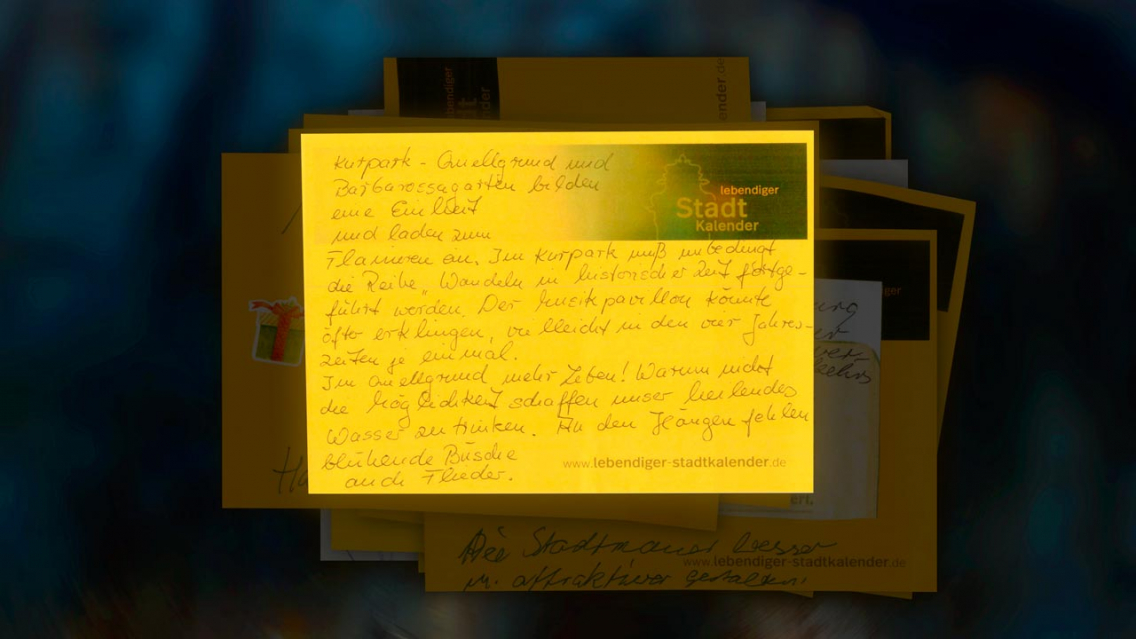 Kurpark - Quellgrund und
Barbarossagarten bilden
eine Einheit
und laden zum
Flanieren an. Im Kurpark muß unbedingt
die Reihe "Wandeln in historischer Zeit fortge-
führt werden. Der Musikpavillon könnte
öfter erklingen, vielleicht in den vier Jahres-
zeiten je einmal.
Im Quellgrund mehr Leben! Warum nicht
die Möglichkeit schaffen unser heilendes
Wasser zu trinken. An den Hängen fehlen
blühende Büsche
auch Flieder.
lebendiger
Stadt
Kalender
www.lebendiger-stadtkalender.de
Die Stadtmauer besser
u. attraktiver gestalten!
www.lebendiger-stadtkalender.de